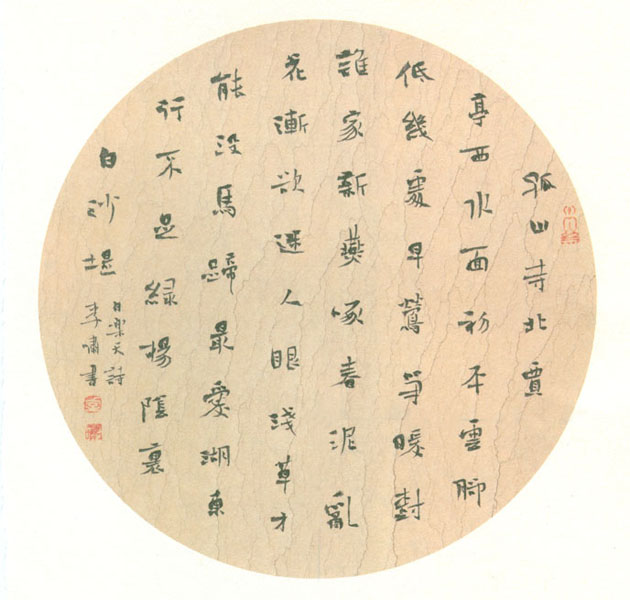 孤山寺北賈
亭西水面初平雲脚
低幾處早鶯爭暖樹
誰家新燕啄春泥亂
花漸欲迷人眼淺草才
能没馬蹄最愛湖東
行不足緑楊陰裏
白沙堤
白樂天詩
李嘯書